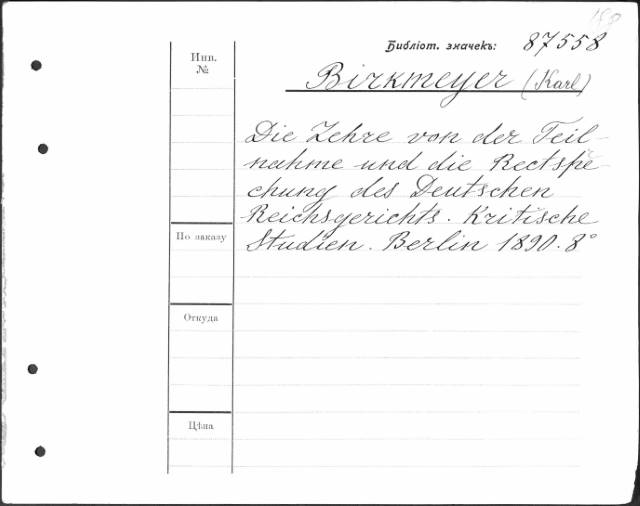 Библіот. значекъ: 87558
Инв.
№
Birkmeyer (Karl)
Die Lehre von der Teil-
nahme und die Rectspre-
chung des Deutschen
Reichsgerichts. Kritische
Studien. Berlin 1890. 8°
По заказу
Откуда
Цѣна